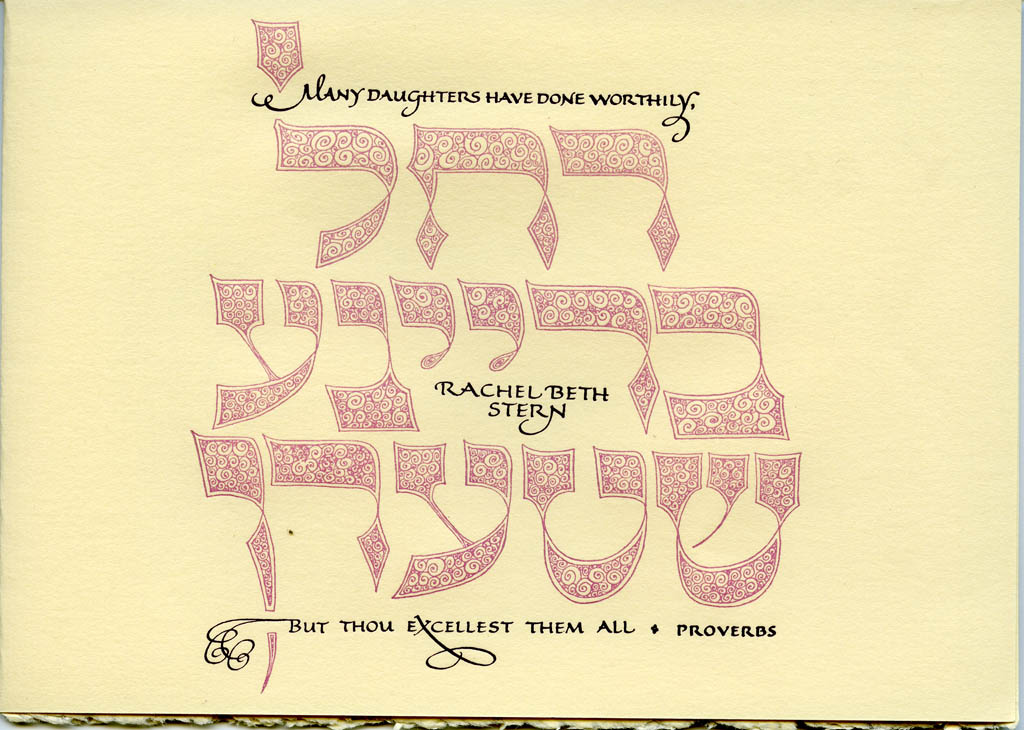 MANY DAUGHTERS HAVE DONE WORTHILY,
רחל
בריינע
RACHEL BETH
STERN
שטערן
BUT THOU EXCELLEST THEM ALL • PROVERBS